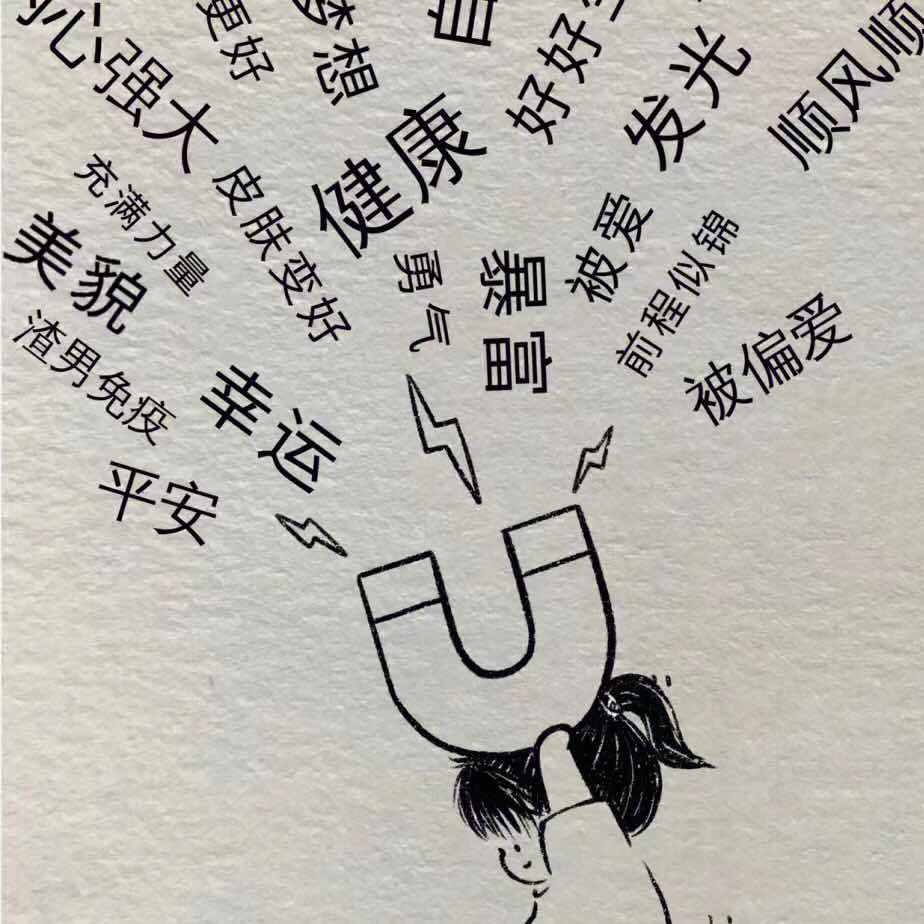 心强大
更好
梦想
自
好好
发光
顺风顺
充满力量
皮肤变好
健康
美貌
勇气
暴富
被爱
前程似锦
被偏爱
渣男免疫
幸运
平安